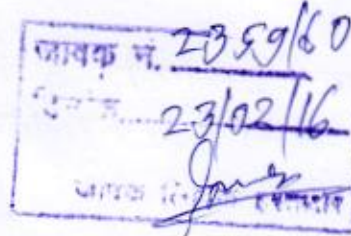 जावक नं. 2359/60
दिनांक 23/02/16
जावक